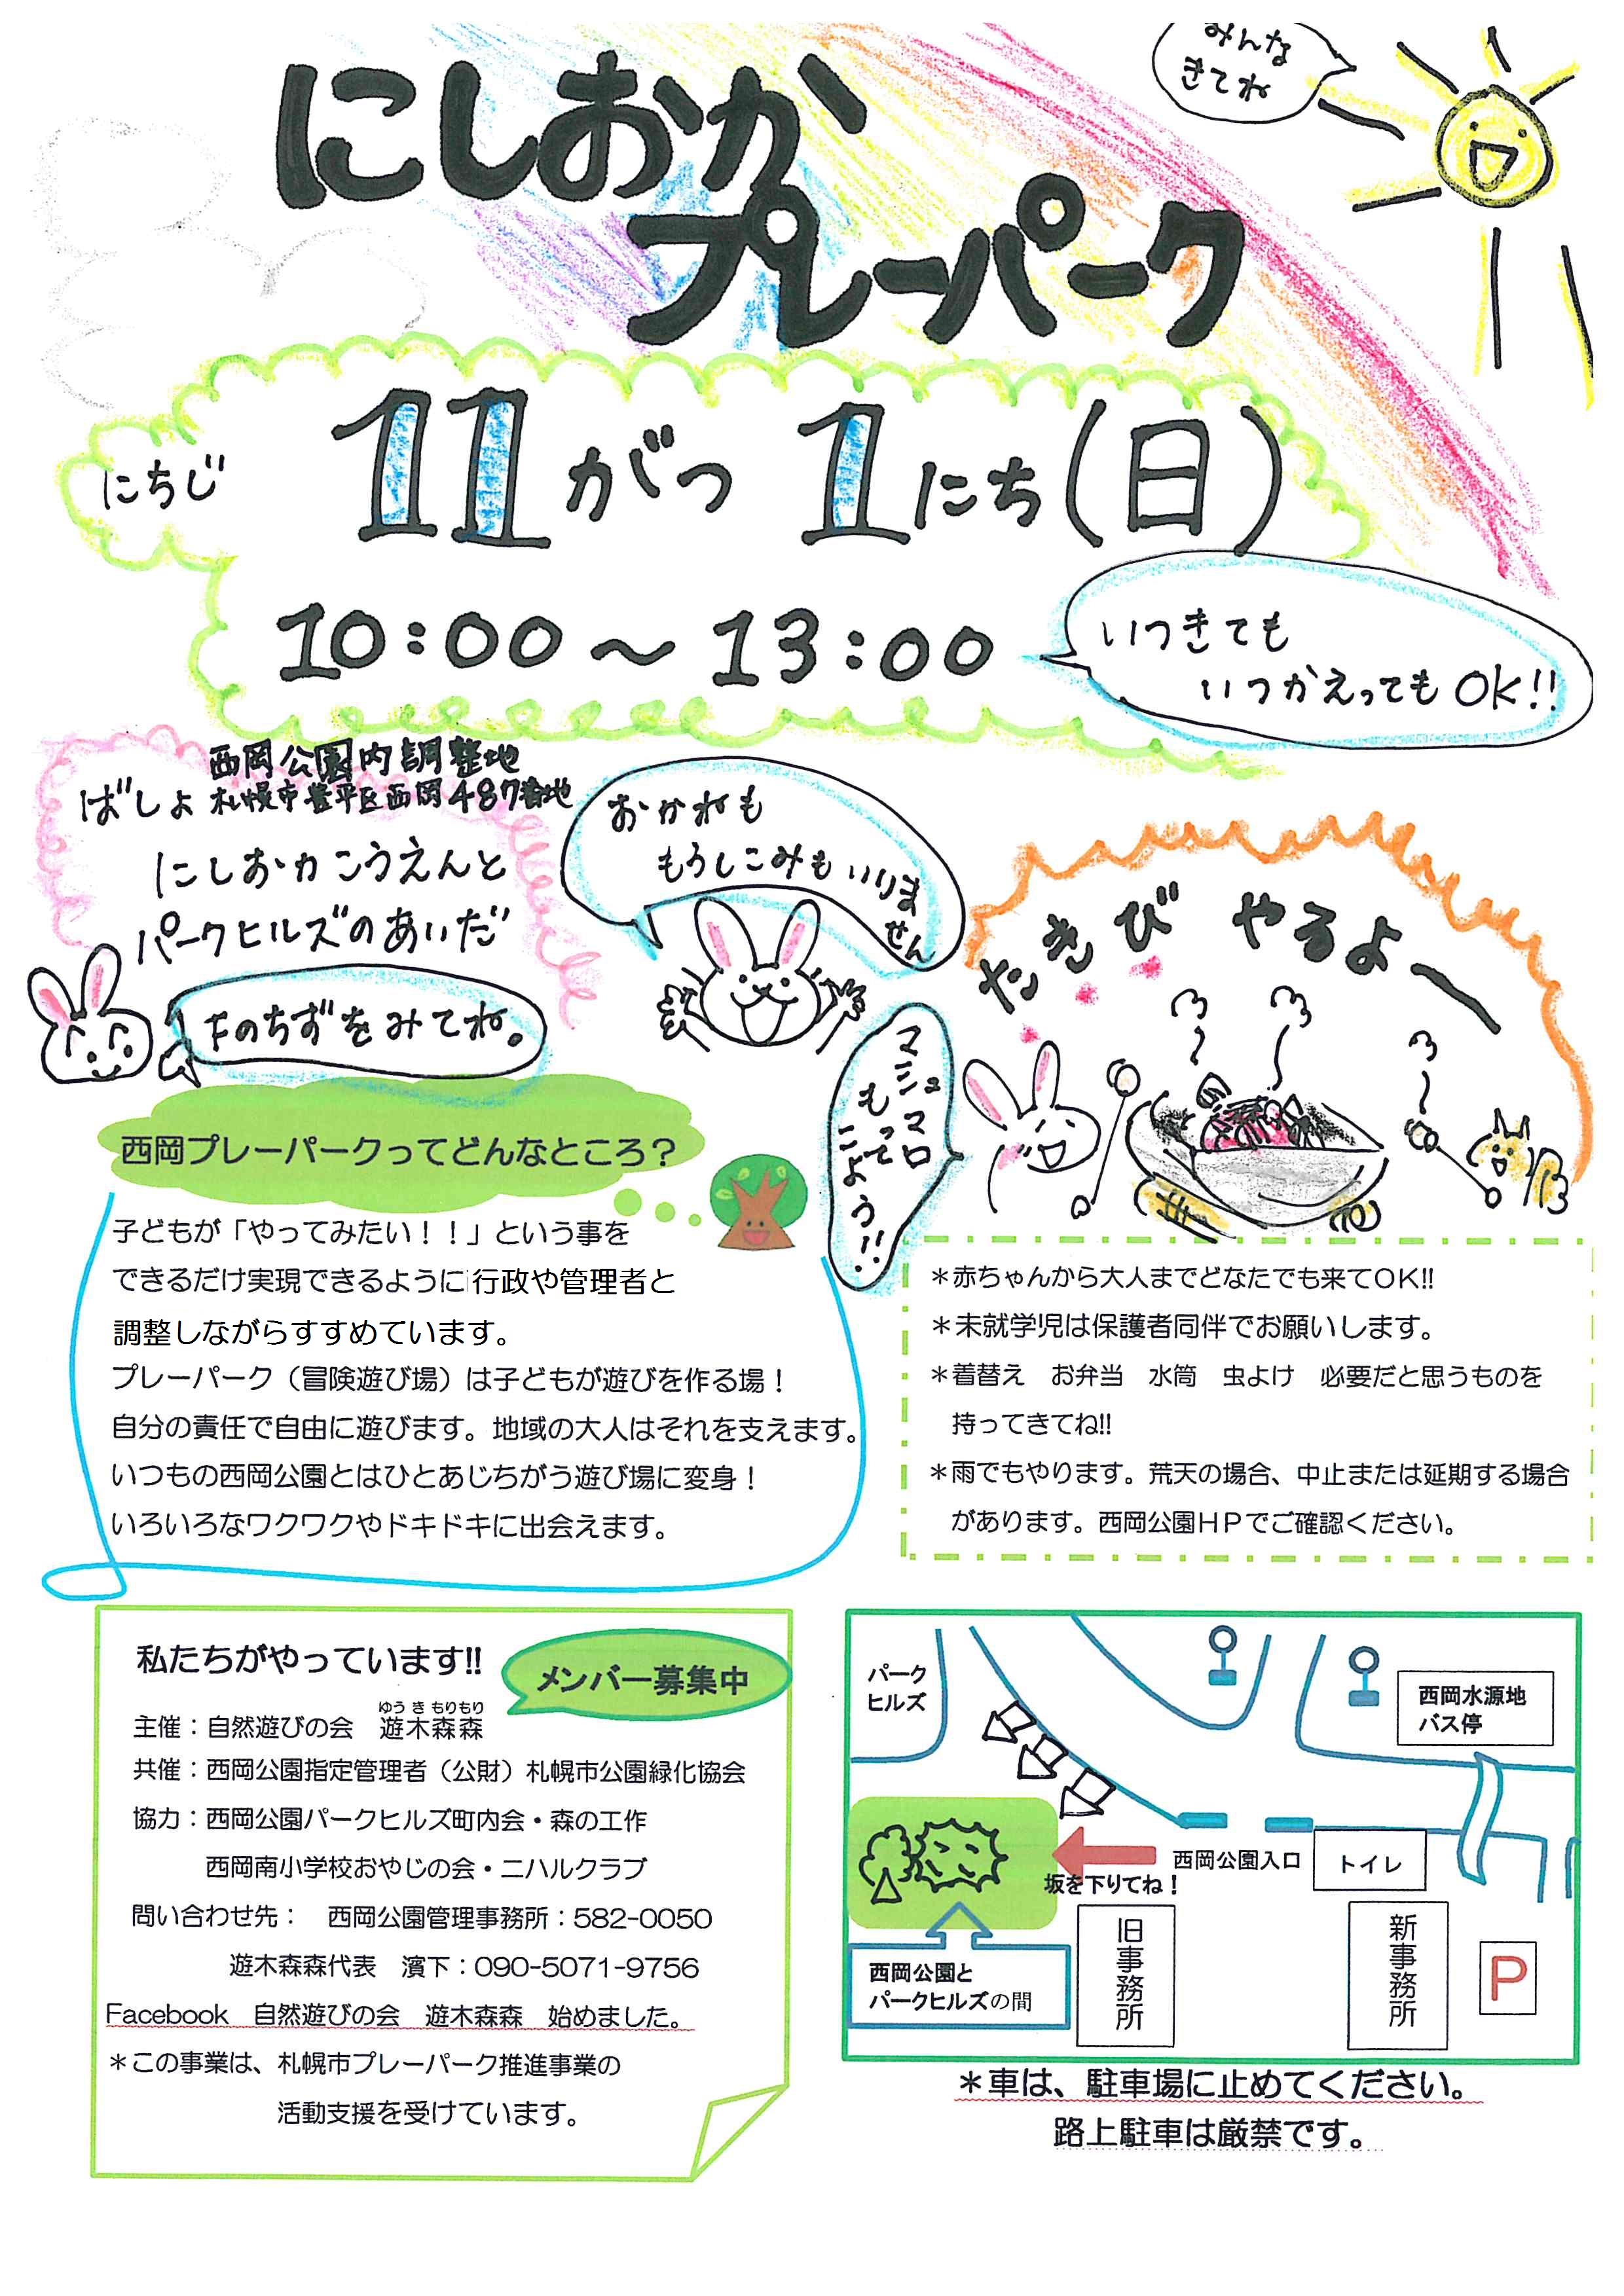 みんな
きてね
にしおか
プレーパーク
にちじ
11がつ 1にち(日)
10:00～13:00
いつきても
いつかえってもOK!!
ばしょ
西岡公園内調整地
札幌市豊平区西岡487番地
にしおかこうえんと
パークヒルズのあいだ
下のちずをみてね。
おかねも
もうしこみもいりません
たきび やるよー
マシュマロ
もって
こよう!!
西岡プレーパークってどんなところ？
子どもが「やってみたい！！」という事を
できるだけ実現できるように行政や管理者と
調整しながらすすめています。
プレーパーク（冒険遊び場）は子どもが遊びを作る場！
自分の責任で自由に遊びます。地域の大人はそれを支えます。
いつもの西岡公園とはひとあじちがう遊び場に変身！
いろいろなワクワクやドキドキに出会えます。
＊赤ちゃんから大人までどなたでも来てＯＫ!!
＊未就学児は保護者同伴でお願いします。
＊着替え　お弁当　水筒　虫よけ　必要だと思うものを
持ってきてね!!
＊雨でもやります。荒天の場合、中止または延期する場合
があります。西岡公園ＨＰでご確認ください。
私たちがやっています!!
メンバー募集中
ゆう き もりもり
主催：自然遊びの会　遊木森森
共催：西岡公園指定管理者（公財）札幌市公園緑化協会
協力：西岡公園パークヒルズ町内会・森の工作
西岡南小学校おやじの会・ニハルクラブ
問い合わせ先：　西岡公園管理事務所：582-0050
遊木森森代表　濱下：090-5071-9756
Facebook　自然遊びの会　遊木森森　始めました。
＊この事業は、札幌市プレーパーク推進事業の
活動支援を受けています。
パーク
ヒルズ
西岡水源地
バス停
西岡公園入口
トイレ
坂を下りてね！
西岡公園と
パークヒルズの間
旧事務所
新事務所
P
＊車は、駐車場に止めてください。
路上駐車は厳禁です。